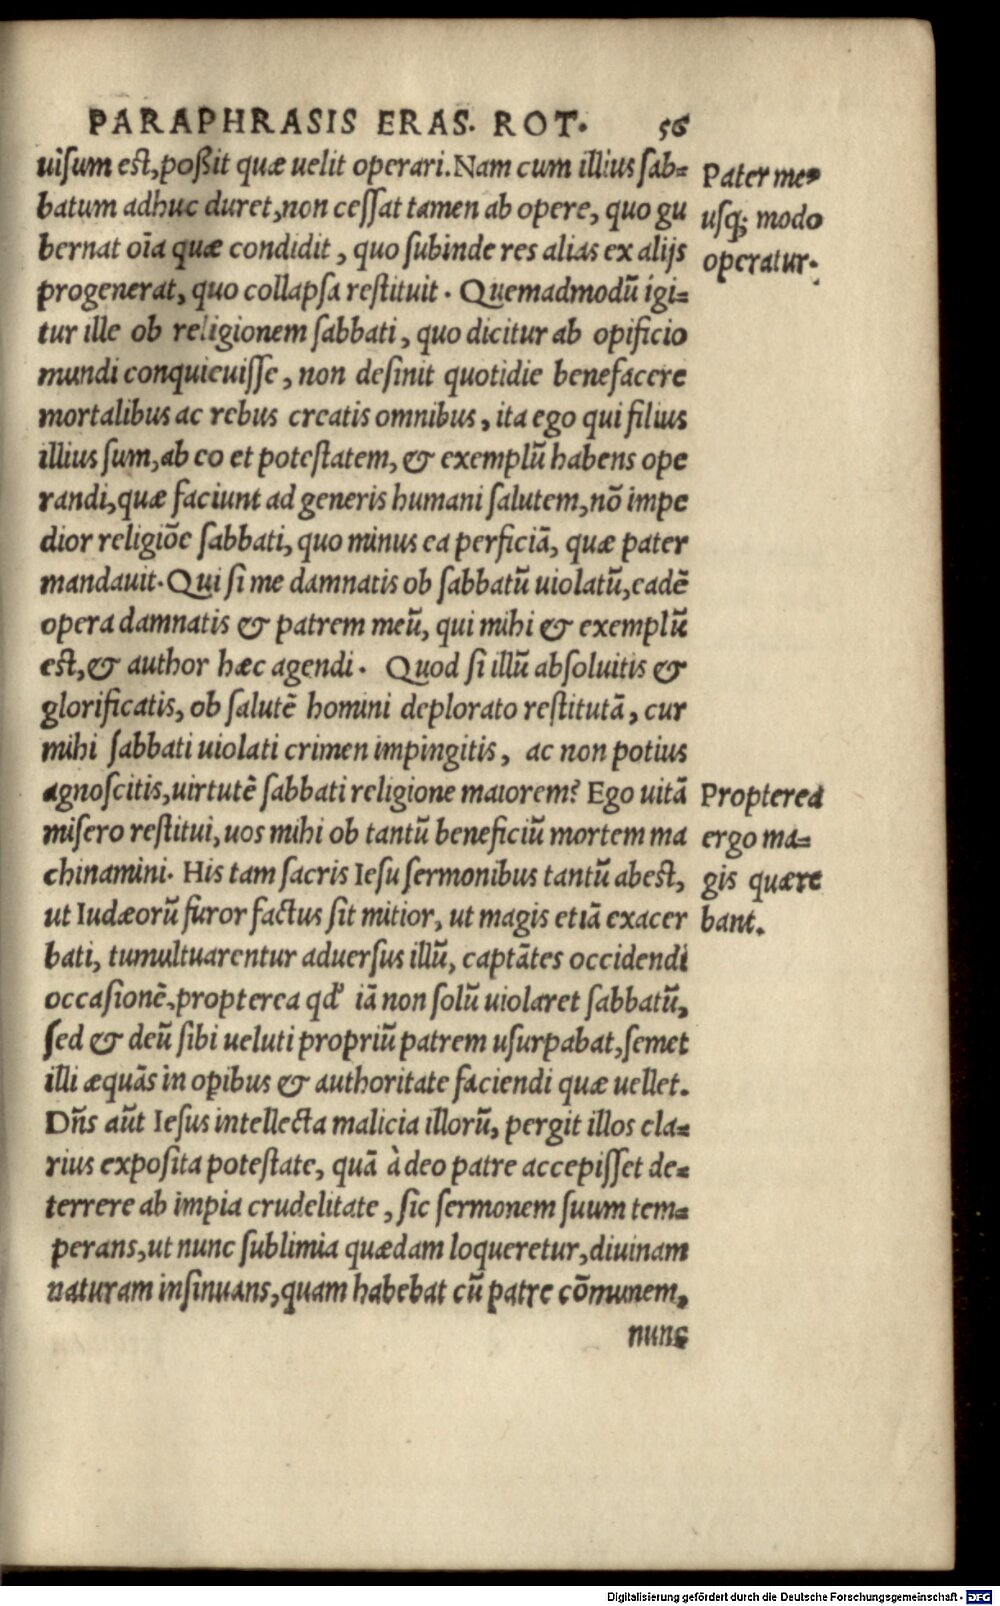 PARAPHRASIS ERAS. ROT. 56
uisum est, poßit quæ uelit operari. Nam cum illius sab=
batum adhuc duret, non cessat tamen ab opere, quo gu
bernat oīa quæ condidit, quo subinde res alias ex alijs
progenerat, quo collapsa restituit. Quemadmodū igi=
tur ille ob religionem sabbati, quo dicitur ab opificio
mundi conquieuisse, non desinit quotidie benefacere
mortalibus ac rebus creatis omnibus, ita ego qui filius
illius sum, ab eo et potestatem, & exemplū habens ope
randi, quæ faciunt ad generis humani salutem, nō impe
dior religiōe sabbati, quo minus ea perficiā, quæ pater
mandauit. Qui si me damnatis ob sabbatū uiolatū, eadē
opera damnatis & patrem meū, qui mihi & exemplū
est, & author hæc agendi. Quod si illū absoluitis &
glorificatis, ob salutē homini deplorato restitutā, cur
mihi sabbati uiolati crimen impingitis, ac non potius
agnoscitis, uirtutē sabbati religione maiorem? Ego uitā
misero restitui, uos mihi ob tantū beneficiū mortem ma
chinamini. His tam sacris Iesu sermonibus tantū abest,
ut Iudæorū furor factus sit mitior, ut magis etiā exacer
bati, tumultuarentur aduersus illū, captātes occidendi
occasionē, propterea qd' iā non solū uiolaret sabbatū,
sed & deū sibi ueluti propriū patrem usurpabat, semet
illi æquās in opibus & authoritate faciendi quæ uellet.
Dñs aūt Iesus intellecta malicia illorū, pergit illos cla=
rius exposita potestate, quā à deo patre accepisset de=
terrere ab impia crudelitate, sic sermonem suum tem=
perans, ut nunc sublimia quædam loqueretur, diuinam
naturam insinuans, quam habebat cū patre cōmunem,
nunc
Pater me⁹
usq; modo
operatur.
Propterea
ergo ma=
gis quære
bant.
Digitalisierung gefördert durch die Deutsche Forschungsgemeinschaft - DFG